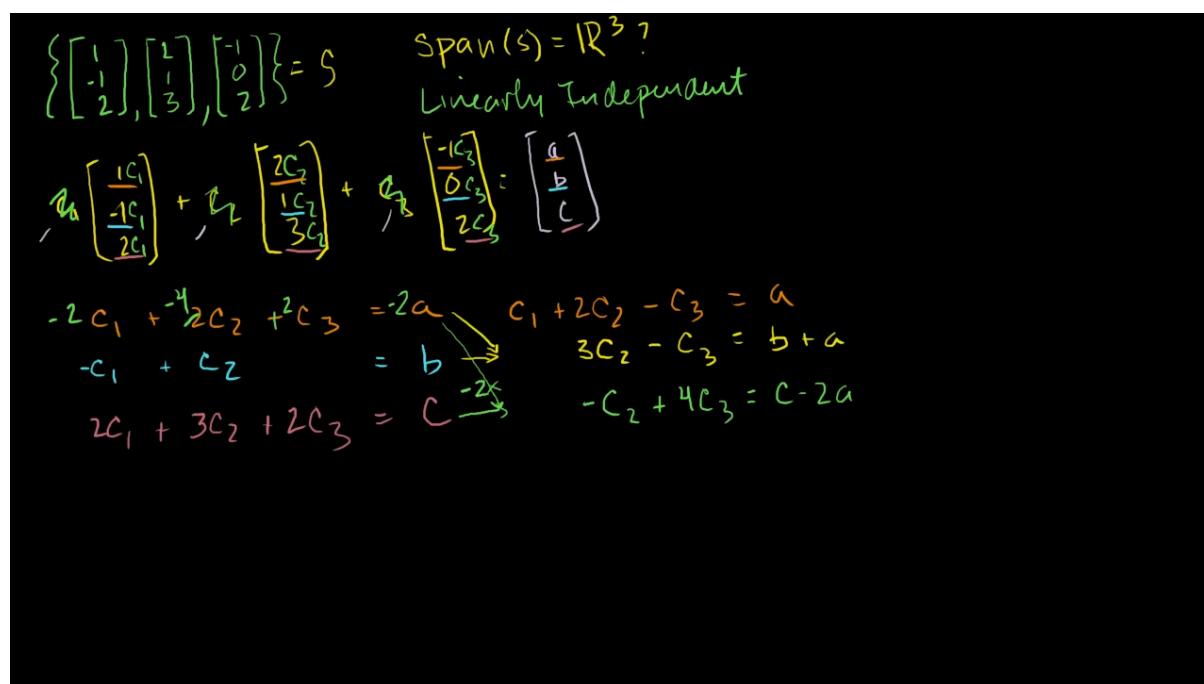 {[1 -1 2], [2 1 3], [-1 0 2]} = S
Span(s) = ℝ³ ?
Linearly Independent
[1C₁ -1C₁ 2C₁] + [2C₂ 1C₂ 3C₂] + [-1C₃ 0C₃ 2C₃] = [a b c]
-2C₁ + -4 2C₂ + 2C₃ = -2a
-C₁ + C₂ = b
2C₁ + 3C₂ + 2C₃ = C
-2x
C₁ + 2C₂ - C₃ = a
3C₂ - C₃ = b + a
-C₂ + 4C₃ = C - 2a